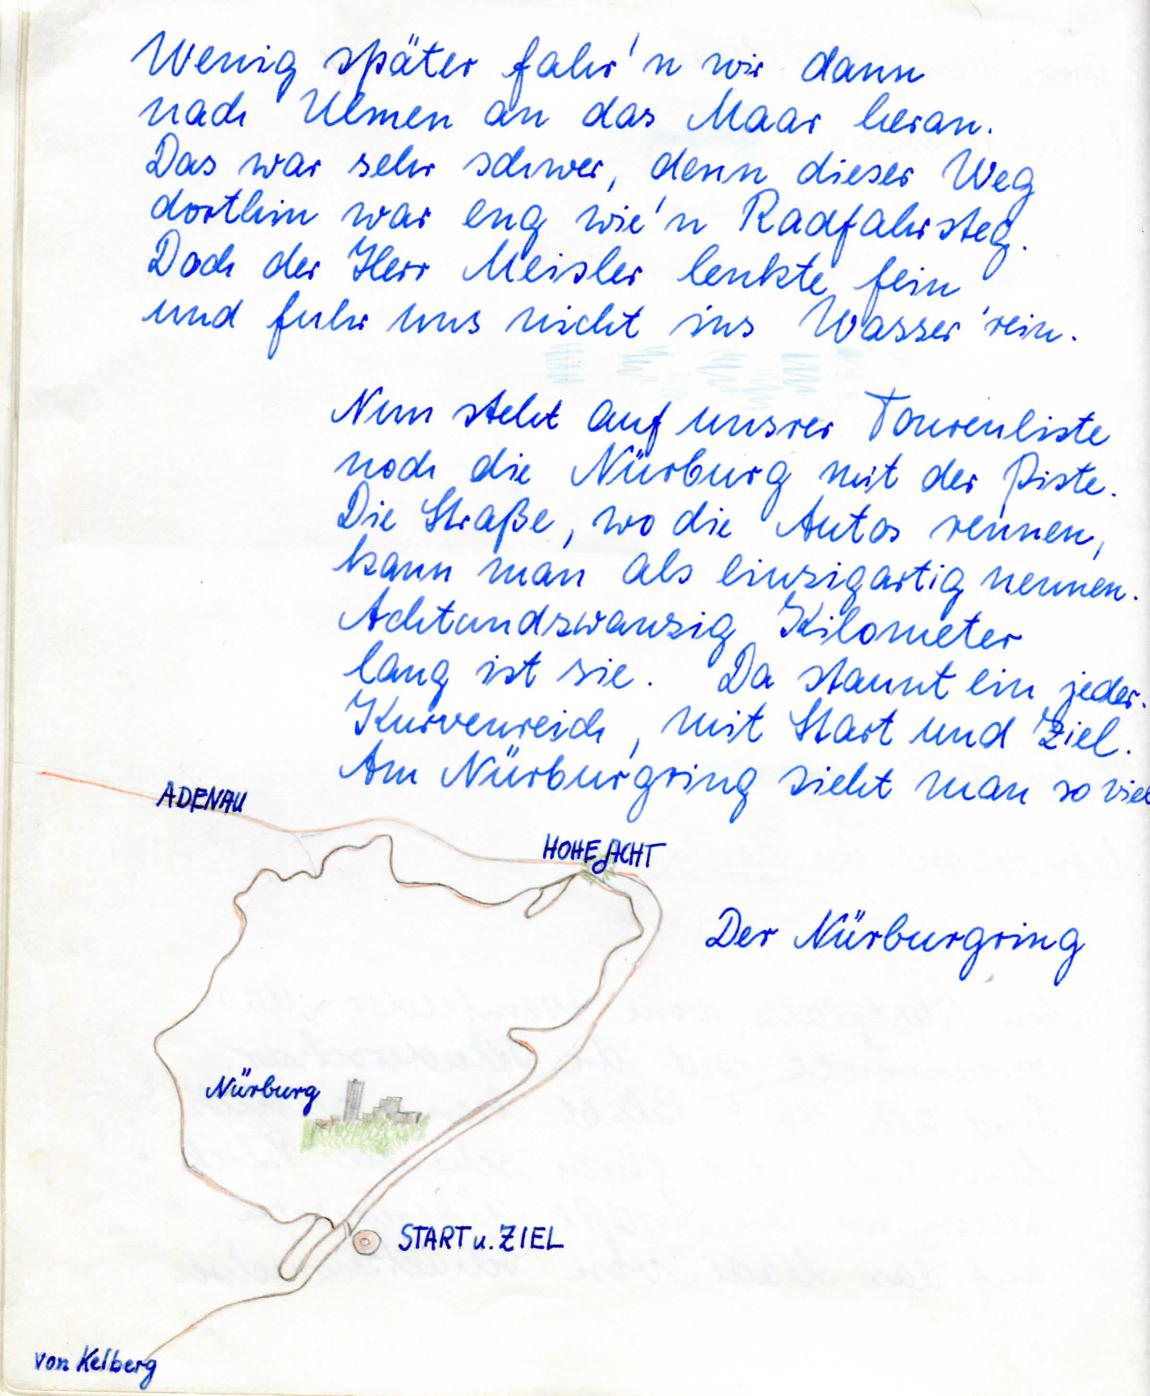 Wenig später fahr'n wir dann
nach Ulmen an das Maar heran.
Das war sehr schwer, denn dieser Weg
dorthin war eng wie'n Radfahrsteg.
Doch der Herr Meisler lenkte fein
und fuhr uns nicht ins Wasser 'rein.
Nun steht auf unsrer Tourenliste
noch die Nürburg mit der Piste.
Die Straße, wo die Autos rennen,
kann man als einzigartig nennen.
Achtundzwanzig Kilometer
lang ist sie. Da staunt ein jeder.
Kurvenreich, mit Start und Ziel.
Am Nürburgring sieht man so viel
ADENAU
HOHE ACHT
Der Nürburgring
Nürburg
START u. ZIEL
von Kelberg